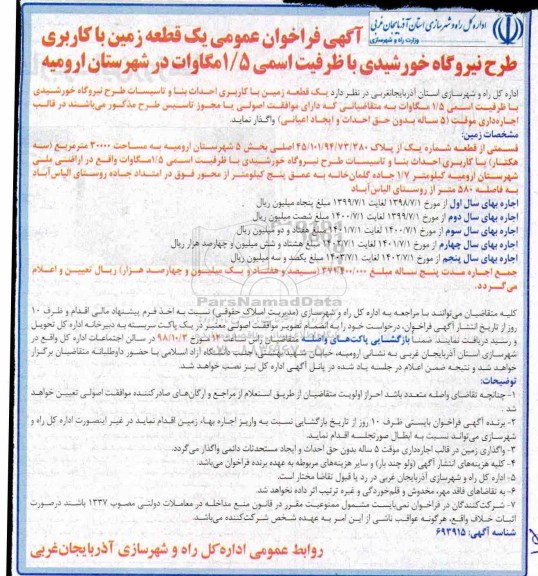 اداره کل راه و شهرسازی استان آذربایجان غربی
وزارت راه و شهرسازی
آگهی فراخوان عمومی یک قطعه زمین با کاربری
طرح نیروگاه خورشیدی با ظرفیت اسمی ۱/۵مگاوات در شهرستان ارومیه
اداره کل راه و شهرسازی استان آذربایجانغربی در نظر دارد یک قطعه زمین با کاربری احداث بنا و تاسیسات طرح نیروگاه خورشیدی
با ظرفیت اسمی ۱/۵ مگاوات به متقاضیانی که دارای موافقت اصولی یا مجوز تاسیس طرح مذکور می‌باشند در قالب
اجاره‌داری موقت (۵ ساله بدون حق احداث و ایجاد اعیانی) واگذار نماید.
مشخصات زمین:
قسمتی از قطعه شماره یک از پلاک ۴۵/۱۰۱/۹۴/۷۳/۳۸۰ اصلی بخش ۵ شهرستان ارومیه به مساحت ۳۰۰۰۰ مترمربع (سه
هکتار) با کاربری احداث بنا و تاسیسات طرح نیروگاه خورشیدی با ظرفیت اسمی ۱/۵مگاوات واقع در اراضی ملی
شهرستان ارومیه کیلومتر ۱/۷ جاده گلمان‌خانه به عمق پنج کیلومتر از محور فوق در امتداد جاده روستای الیاس‌آباد
به فاصله ۵۸۰ متر از روستای الیاس‌آباد
اجاره بهای سال اول از مورخ ۱۳۹۸/۷/۱ لغایت ۱۳۹۹/۷/۱ مبلغ پنجاه میلیون ریال
اجاره بهای سال دوم از مورخ ۱۳۹۹/۷/۱ لغایت ۱۴۰۰/۷/۱ مبلغ شصت میلیون ریال
اجاره بهای سال سوم از مورخ ۱۴۰۰/۷/۱ لغایت ۱۴۰۱/۷/۱ مبلغ هفتاد و دو میلیون ریال
اجاره بهای سال چهارم از مورخ ۱۴۰۱/۷/۱ لغایت ۱۴۰۲/۷/۱ مبلغ هشتاد و شش میلیون و چهارصد هزار ریال
اجاره بهای سال پنجم از مورخ ۱۴۰۲/۷/۱ لغایت ۱۴۰۳/۷/۱ مبلغ یکصد و سه میلیون ریال
جمع اجاره مدت پنج ساله مبلغ ۳۷۱/۴۰۰/۰۰۰ (سیصد و هفتاد و یک میلیون و چهارصد هزار) ریال تعیین و اعلام
می‌گردد.
ParsNamadData
کلیه متقاضیان می‌توانند با مراجعه به اداره کل راه و شهرسازی (مدیریت املاک حقوقی) نسبت به اخذ فرم پیشنهاد مالی اقدام و ظرف ۱۰
روز از تاریخ انتشار آگهی فراخوان، درخواست خود را به انضمام تصویر موافقت اصولی معتبر در یک پاکت سربسته به دبیرخانه اداره کل تحویل
و رسید دریافت نمایند. ضمنا بازگشایی پاکت‌های واصله متقاضیان راس ساعت ۱۴ مورخ ۹۸/۱۰/۳ در سالن اجتماعات اداره کل واقع در
شهرسازی استان آذربایجان غربی به نشانی ارومیه، خیابان شهید بهشتی جنب دانشگاه آزاد اسلامی با حضور داوطلبانه متقاضیان برگزار
خواهد شد و نتیجه ضمن اعلام در جلسه یاد شده در پانل آگهی اداره کل نیز نصب خواهد شد.
توضیحات:
۱- چنانچه تقاضای واصله متعدد باشد احراز اولویت متقاضیان از طریق استعلام از مراجع و ارگان‌های صادرکننده موافقت اصولی تعیین خواهد
شد
۲- برنده آگهی فراخوان بایستی ظرف ۱۰ روز از تاریخ بازگشایی نسبت به واریز اجاره بهاء زمین اقدام نماید در غیر اینصورت اداره کل راه و
شهرسازی می‌تواند نسبت به ابطال صورتجلسه اقدام نماید.
۳- واگذاری زمین در قالب اجاره‌داری موقت ۵ ساله بدون حق احداث و ایجاد مستحدثات دائمی واگذار می‌گردد.
۴- کلیه هزینه‌های انتشار آگهی (ولو چند بار) و سایر هزینه‌های مربوطه به عهده برنده فراخوان می‌باشد.
۵- اداره کل راه و شهرسازی آذربایجان غربی در رد یا قبول تقاضا مختار است.
۶- به تقاضاهای فاقد مهر، مخدوش و قلم‌خوردگی و غیره ترتیب اثر داده نخواهد شد.
۷- شرکت‌کنندگان در فراخوان نمی‌بایست مشمول ممنوعیت مقرر در قانون منع مداخله در معاملات دولتی مصوب ۱۳۳۷ باشند درصورت
اثبات خلاف واقع، هرگونه عواقب ناشی از این امر به عهده شخص شرکت‌کننده می‌باشد.
شناسه آگهی: ۶۹۳۹۱۵
روابط عمومی اداره‌کل راه و شهرسازی آذربایجان‌غربی